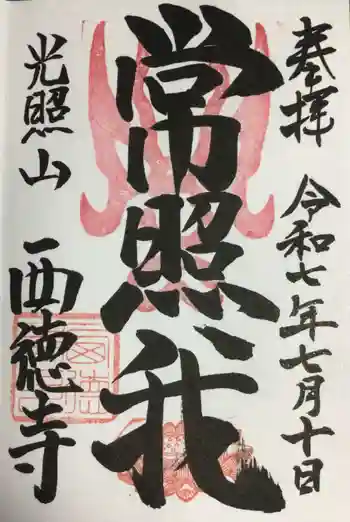 奉拝
令和七年七月十日
常照我
光照山
西徳寺